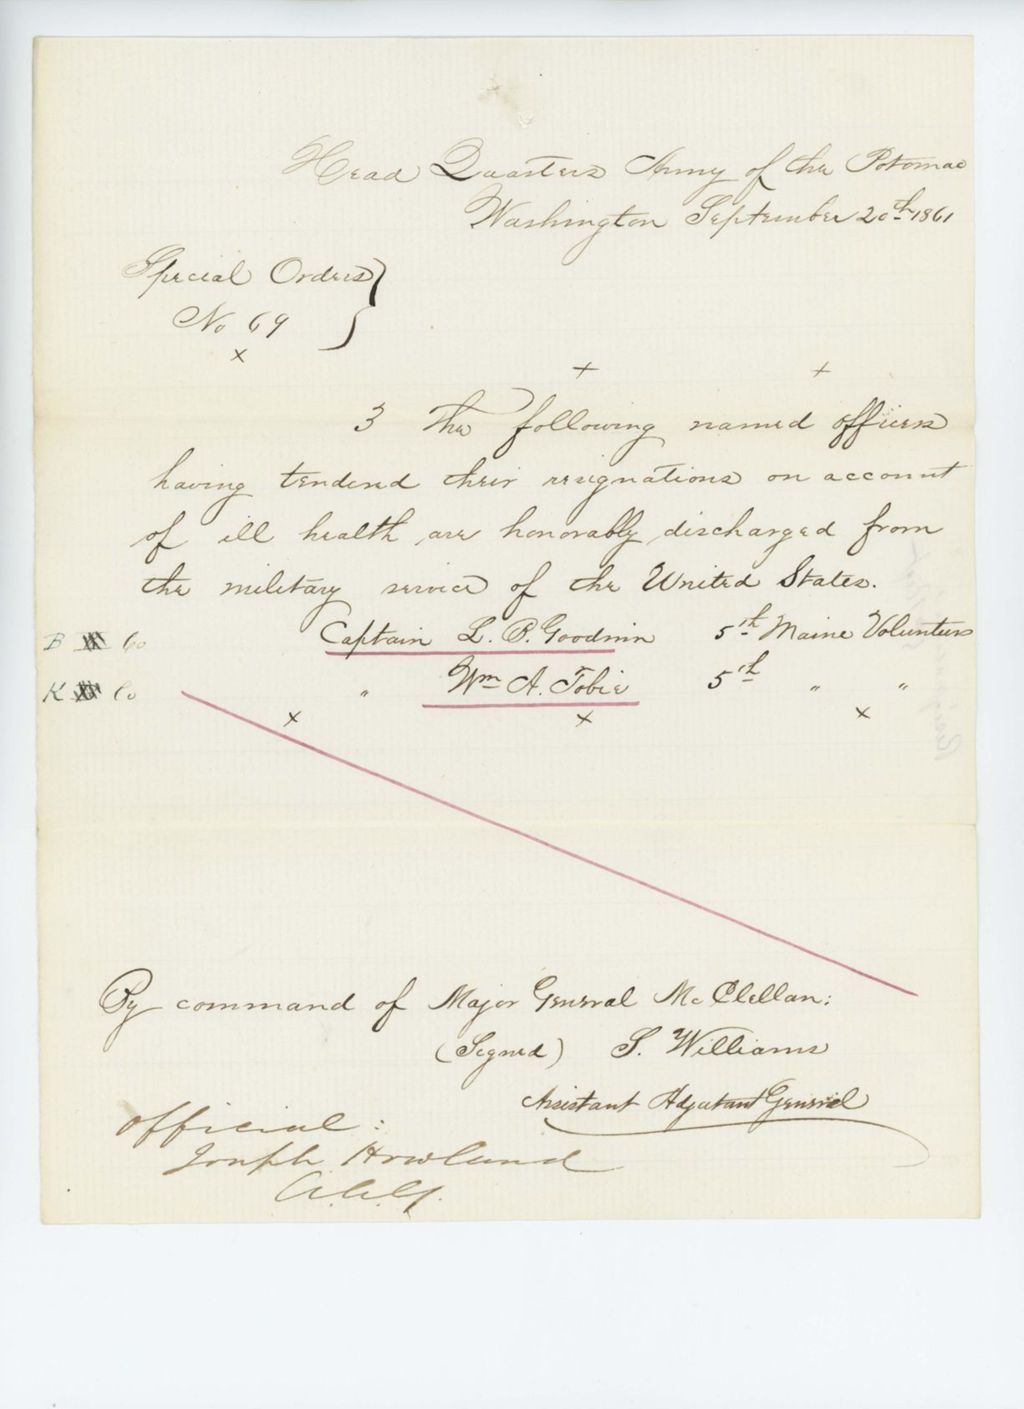 Head Quarters Army of the Potomac
Washington September 20th 1861
Special Orders
No 69
x + +
3 The following named officers
having tendered their resignations on account
of ill health, are honorably discharged from
the military service of the United States.
B Co Captain L. P. Goodwin 5th Maine Volunteers
K Co " Wm A. Tobie 5th " "
x x x
By command of Major General McClellan:
(Signed) S. Williams
Assistant Adjutant General
Official:
Joseph Howland
A.A.G.